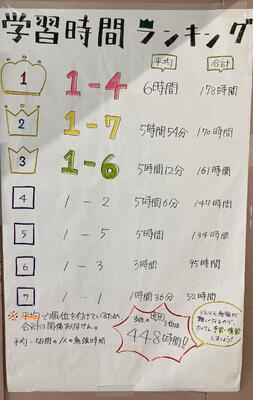 学習時間ランキング
平均 合計
1 1-4 6時間 178時間
2 1-7 5時間54分 170時間
3 1-6 5時間12分 161時間
4 1-2 5時間6分 147時間
5 1-5 5時間 134時間
6 1-3 3時間 95時間
7 1-1 1時間36分 52時間
※平均で順位を付けているため
合計は関係ありません。
平均=5日間の1人の勉強時間
1位は
448時間!!
どんどん勉強が
難しくなるので
たけん予習・復習
しましょう!